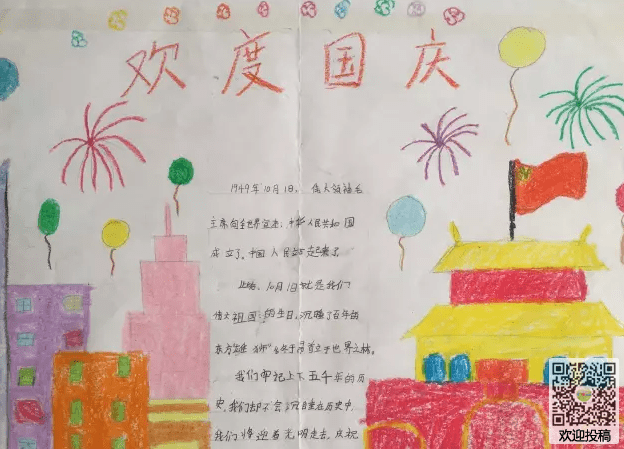 欢度国庆
1949年10月1日，伟大领袖毛
主席向全世界宣告：中华人民共和国
成立了，中国人民站起来了
10月1日就是我们
伟大祖国的生日，沉睡了百年的
东方雄狮"终于昂首立于世界之林。
我们牢记上下五千年的历
史，我们却不会沉睡在历史中，
我们将迎着光明走去，庆祝
欢迎投稿